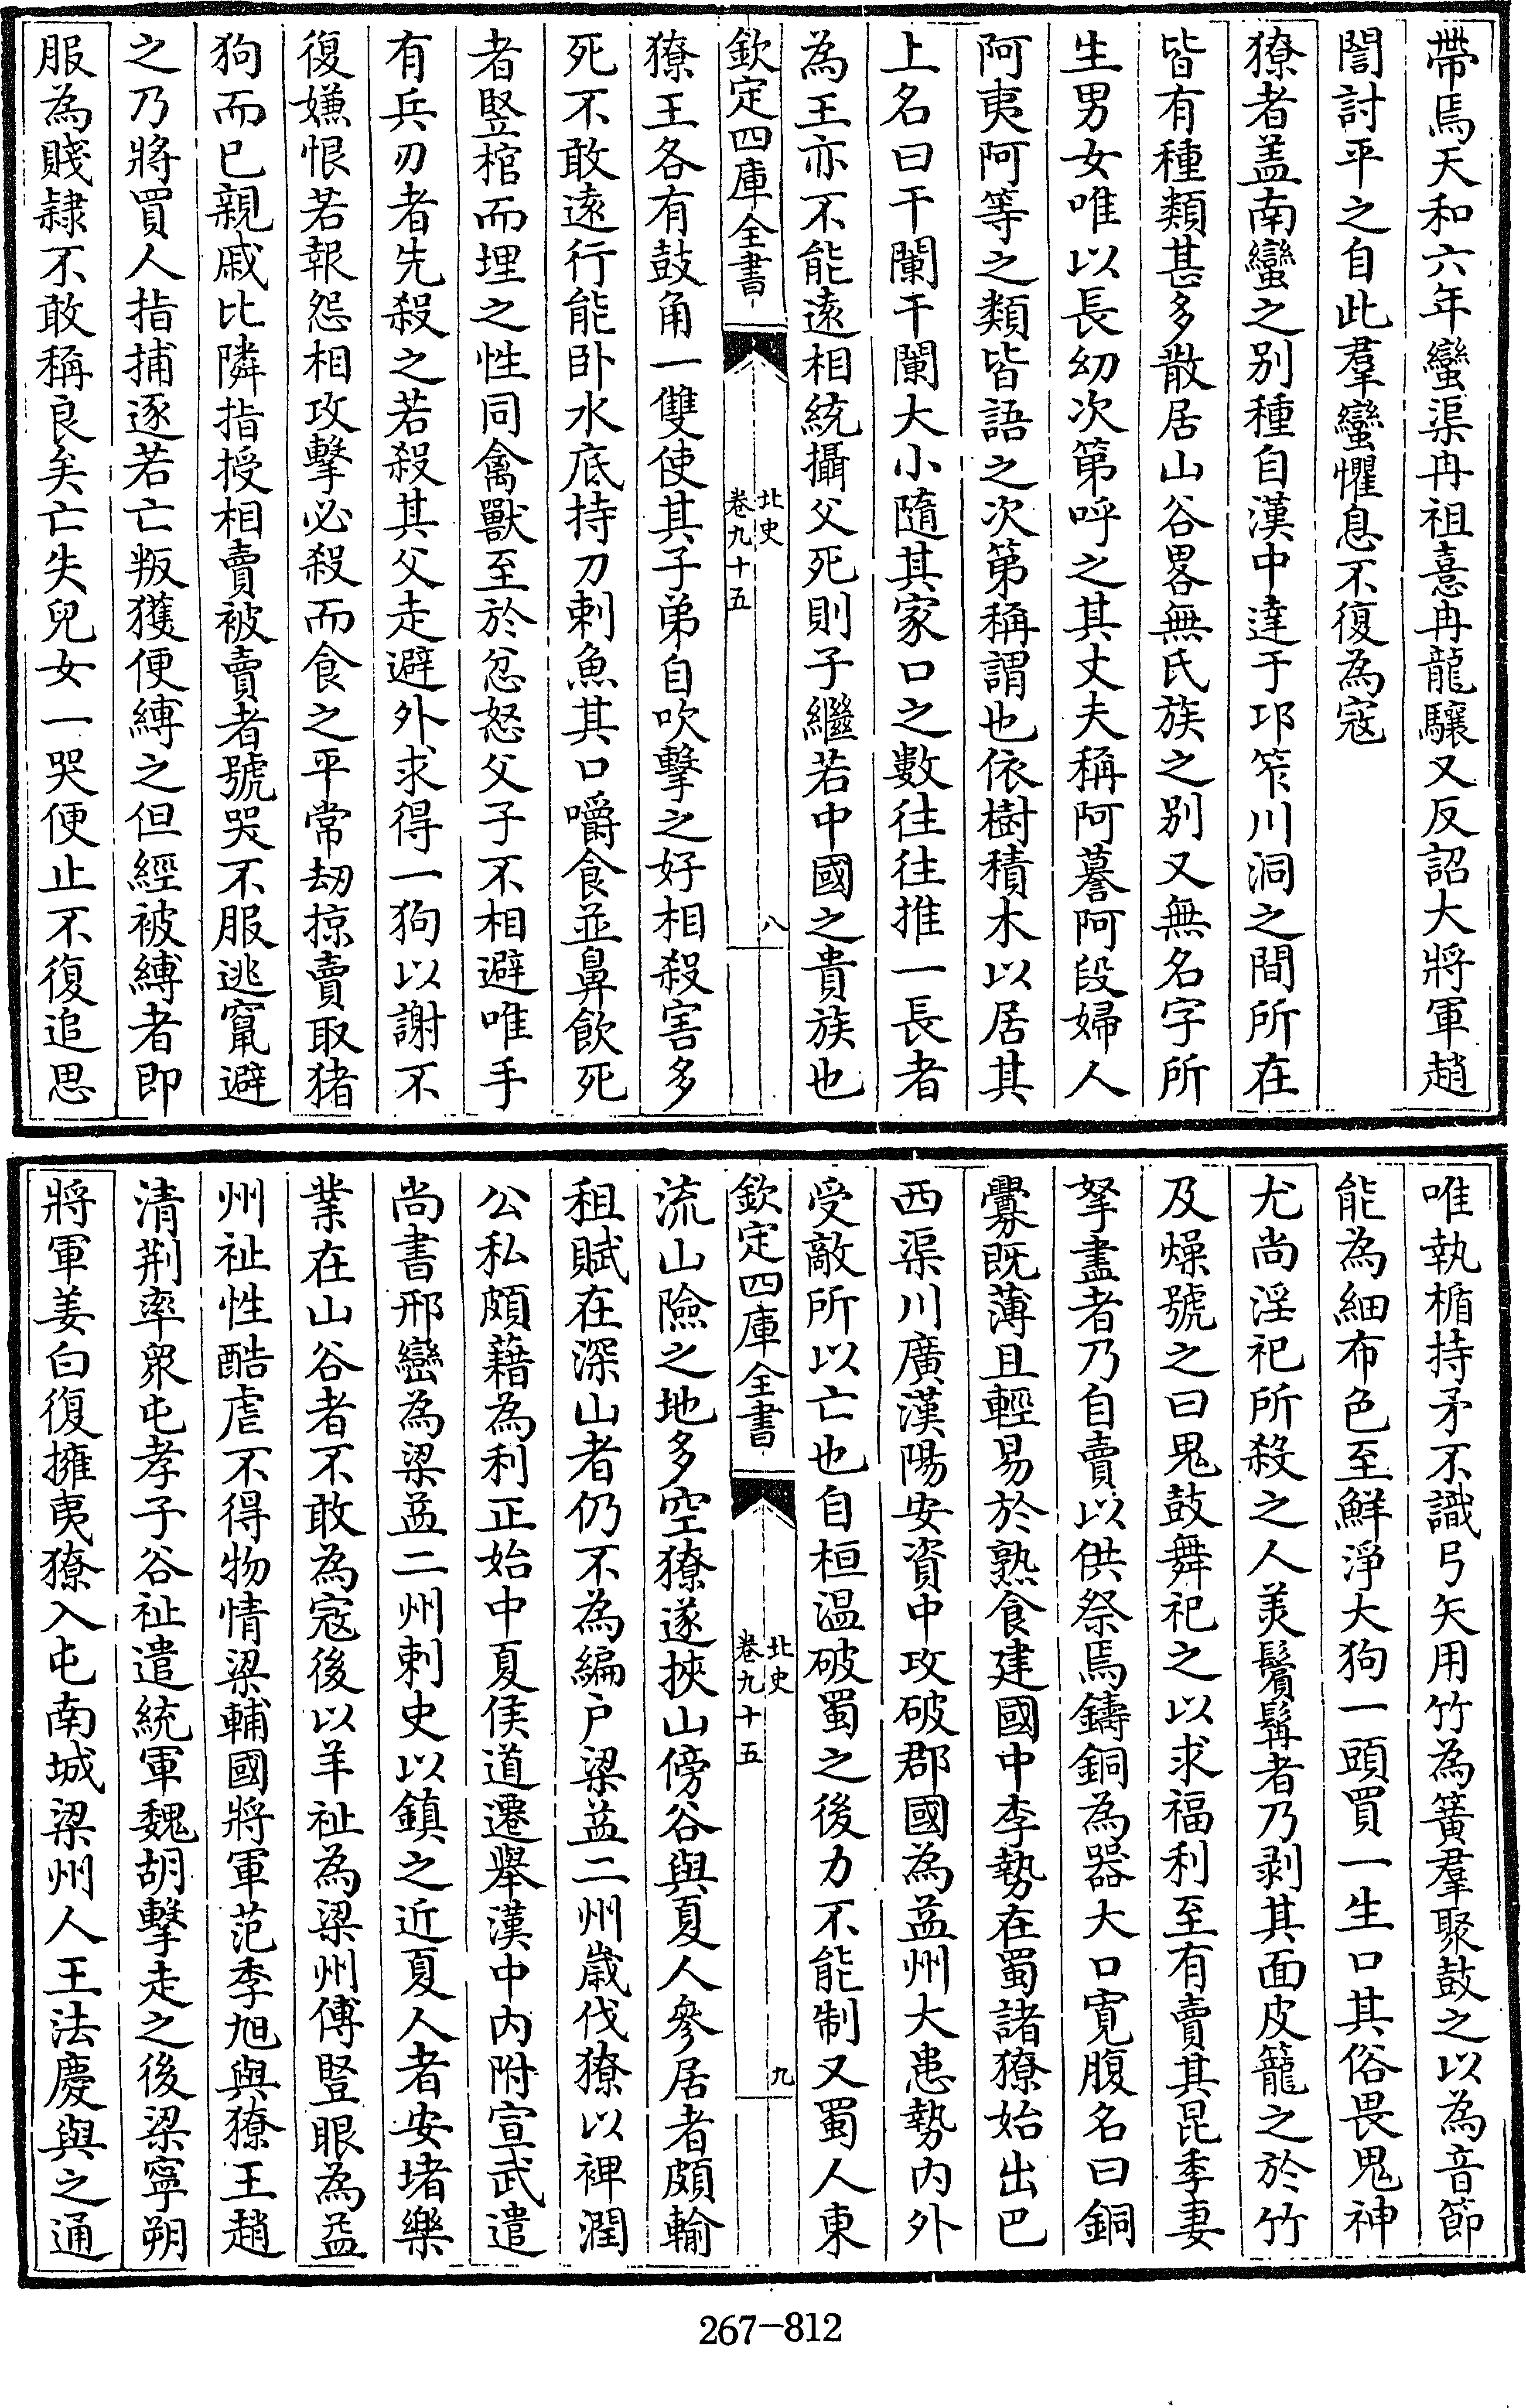 帶焉天和六年蠻渠冉祖憙冉龍驤又反詔大將軍趙
誾討平之自此羣蠻懼息不復為寇
獠者盖南蠻之别種自漢中達于邛笮川洞之間所在
皆有種類甚多散居山谷畧無氏族之别又無名字所
生男女唯以長幼次第呼之其丈夫稱阿䕫阿段婦人
阿夷阿等之類皆語之次第稱謂也依樹積木以居其
上名曰干闌干闌大小隨其家口之數往往推一長者
為王亦不能遠相統攝父死則子繼若中國之貴族也
欽定四庫全書
北史
卷九十五
八
獠王各有鼓角一雙使其子弟自吹擊之好相殺害多
死不敢遠行能卧水底持刀刺魚其口嚼食並鼻飲死
者竪棺而埋之性同禽獸至於忿怒父子不相避唯手
有兵刃者先殺之若殺其父走避外求得一狗以謝不
復嫌恨若報怨相攻擊必殺而食之平常劫掠賣取猪
狗而已親戚比隣指授相賣被賣者號哭不服逃竄避
之乃將買人指捕逐若亡叛獲便縛之但經被縛者即
服為賤隸不敢稱良矣亡失兒女一哭便止不復追思
唯執楯持矛不識弓矢用竹為簧羣聚鼓之以為音節
能為細布色至鮮淨大狗一頭買一生口其俗畏鬼神
尤尚淫祀所殺之人美鬢髯者乃剥其面皮籠之於竹
及燥號之曰鬼鼓舞祀之以求福利至有賣其昆季妻
孥盡者乃自賣以供祭焉鑄銅為器大口寛腹名曰銅
爨既薄且輕易於熟食建國中李勢在蜀諸獠始出巴
西渠川廣漢陽安資中攻破郡國為益州大患勢内外
受敵所以亡也自桓温破蜀之後力不能制又蜀人東
欽定四庫全書
北史
卷九十五
九
流山險之地多空獠遂挾山傍谷與夏人參居者頗輸
租賦在深山者仍不為編户梁益二州歲伐獠以裨潤
公私頗藉為利正始中夏侯道遷舉漢中内附宣武遣
尚書邢巒為梁益二州刺史以鎮之近夏人者安堵樂
業在山谷者不敢為寇後以羊祉為梁州傅豎眼為益
州祉性酷虐不得物情梁輔國將軍范季旭與獠王趙
清荆率衆屯孝子谷祉遣統軍魏胡擊走之後梁寧朔
將軍姜白復擁夷獠入屯南城梁州人王法慶與之通
267-812